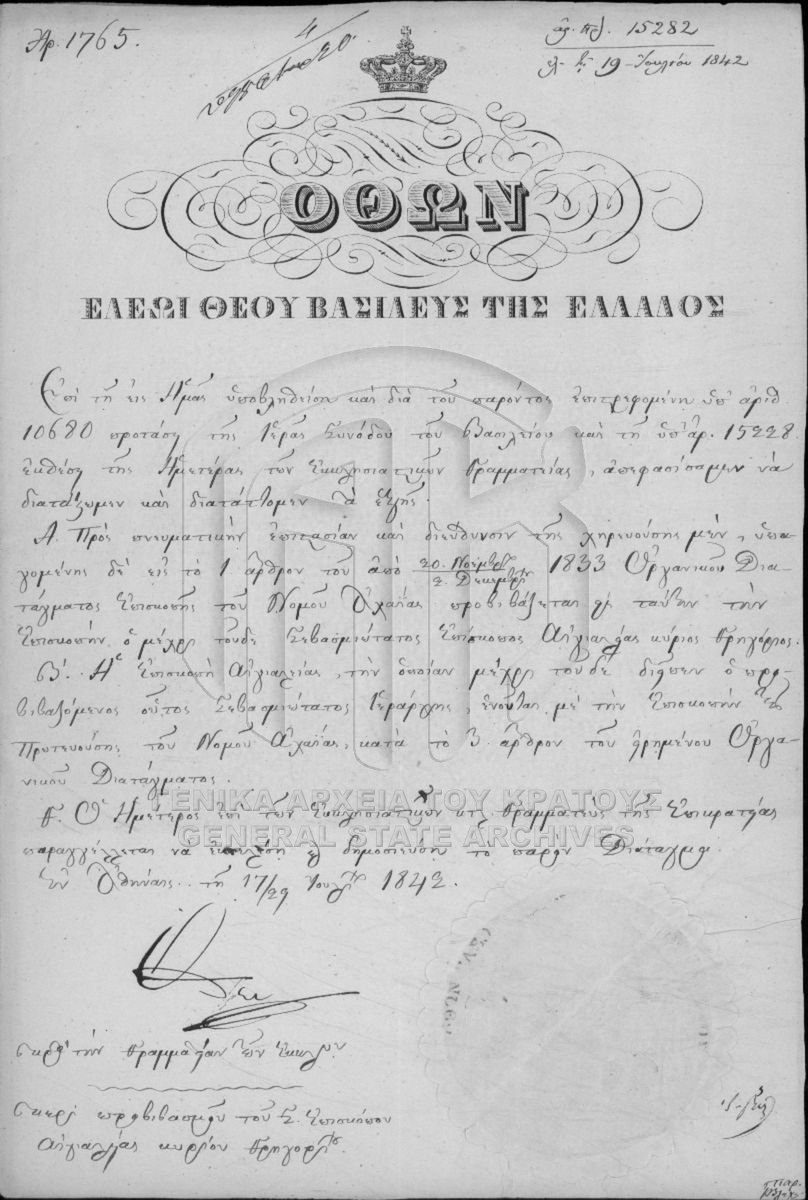 Ἀρ. 1765.
4
ἀρ. πρ. 15282
19 Ἰουλίου 1842
ΟΘΩΝ
ΕΛΕΩΙ ΘΕΟΥ ΒΑΣΙΛΕΥΣ ΤΗΣ ΕΛΛΑΔΟΣ
Ἐπὶ τῇ εἰς Ἡμᾶς ὑποβληθείσῃ καὶ διὰ τοῦ παρόντος ἐπιστρεφομένῃ ὑπ' ἀριθ.
10680 προτάσει τῆς Ἱερᾶς Συνόδου τοῦ Βασιλείου καὶ τῇ ὑπ' ἀρ. 15228
ἐκθέσει τῆς Ἡμετέρας τῶν Ἐκκλησιαστικῶν Γραμματείας, ἀπεφασίσαμεν νὰ
διατάξωμεν καὶ διατάττομεν τὰ ἑξῆς.
Α. Πρὸς πνευματικὴν ἐπιστασίαν καὶ διεύθυνσιν τῆς χηρευούσης μὲν, ὑπα-
γομένης δὲ εἰς τὸ 1 ἄρθρον τοῦ ἀπὸ 20. Νοεμβρ/2. Δεκεμβρ 1833 Ὀργανικοῦ Δια-
τάγματος Ἐπισκοπῆς τοῦ Νομοῦ Ἀχαΐας προβιβάζεται εἰς ταύτην τὴν
Ἐπισκοπὴν ὁ μέχρι τοῦδε Σεβασμιώτατος Ἐπίσκοπος Αἰγιαλείας κύριος Γρηγόριος.
Β. Ἡ Ἐπισκοπὴ Αἰγιαλείας, τὴν ὁποίαν μέχρι τοῦδε διεῖπεν ὁ προ-
βιβαζόμενος οὗτος Σεβασμιώτατος Ἱεράρχης, ἑνοῦται μὲ τὴν Ἐπισκοπὴν τῆς
Πρωτευούσης τοῦ Νομοῦ Ἀχαΐας, κατὰ τὸ 3 ἄρθρον τοῦ εἰρημένου Ὀργα-
νικοῦ Διατάγματος.
Γ. Ὁ Ἡμέτερος ἐπὶ τῶν Ἐκκλησιαστικῶν κτλ Γραμματεὺς τῆς Ἐπικρατείας
παραγγέλλεται νὰ ἐκτελέσῃ καὶ δημοσιεύσῃ τὸ παρὸν Διάταγμα.
Ἐν Ἀθήναις τῇ 17/29 Ἰουλίου 1842.
ΓΕΝΙΚΑ ΑΡΧΕΙΑ ΤΟΥ ΚΡΑΤΟΥΣ
GENERAL STATE ARCHIVES
Όθων
πρὸς τὴν Γραμματείαν τῶν Ἐκκλησ
περὶ προβιβασμοῦ τοῦ Σ. Ἐπισκόπου
Αἰγιαλείας κυρίου Γρηγορίου